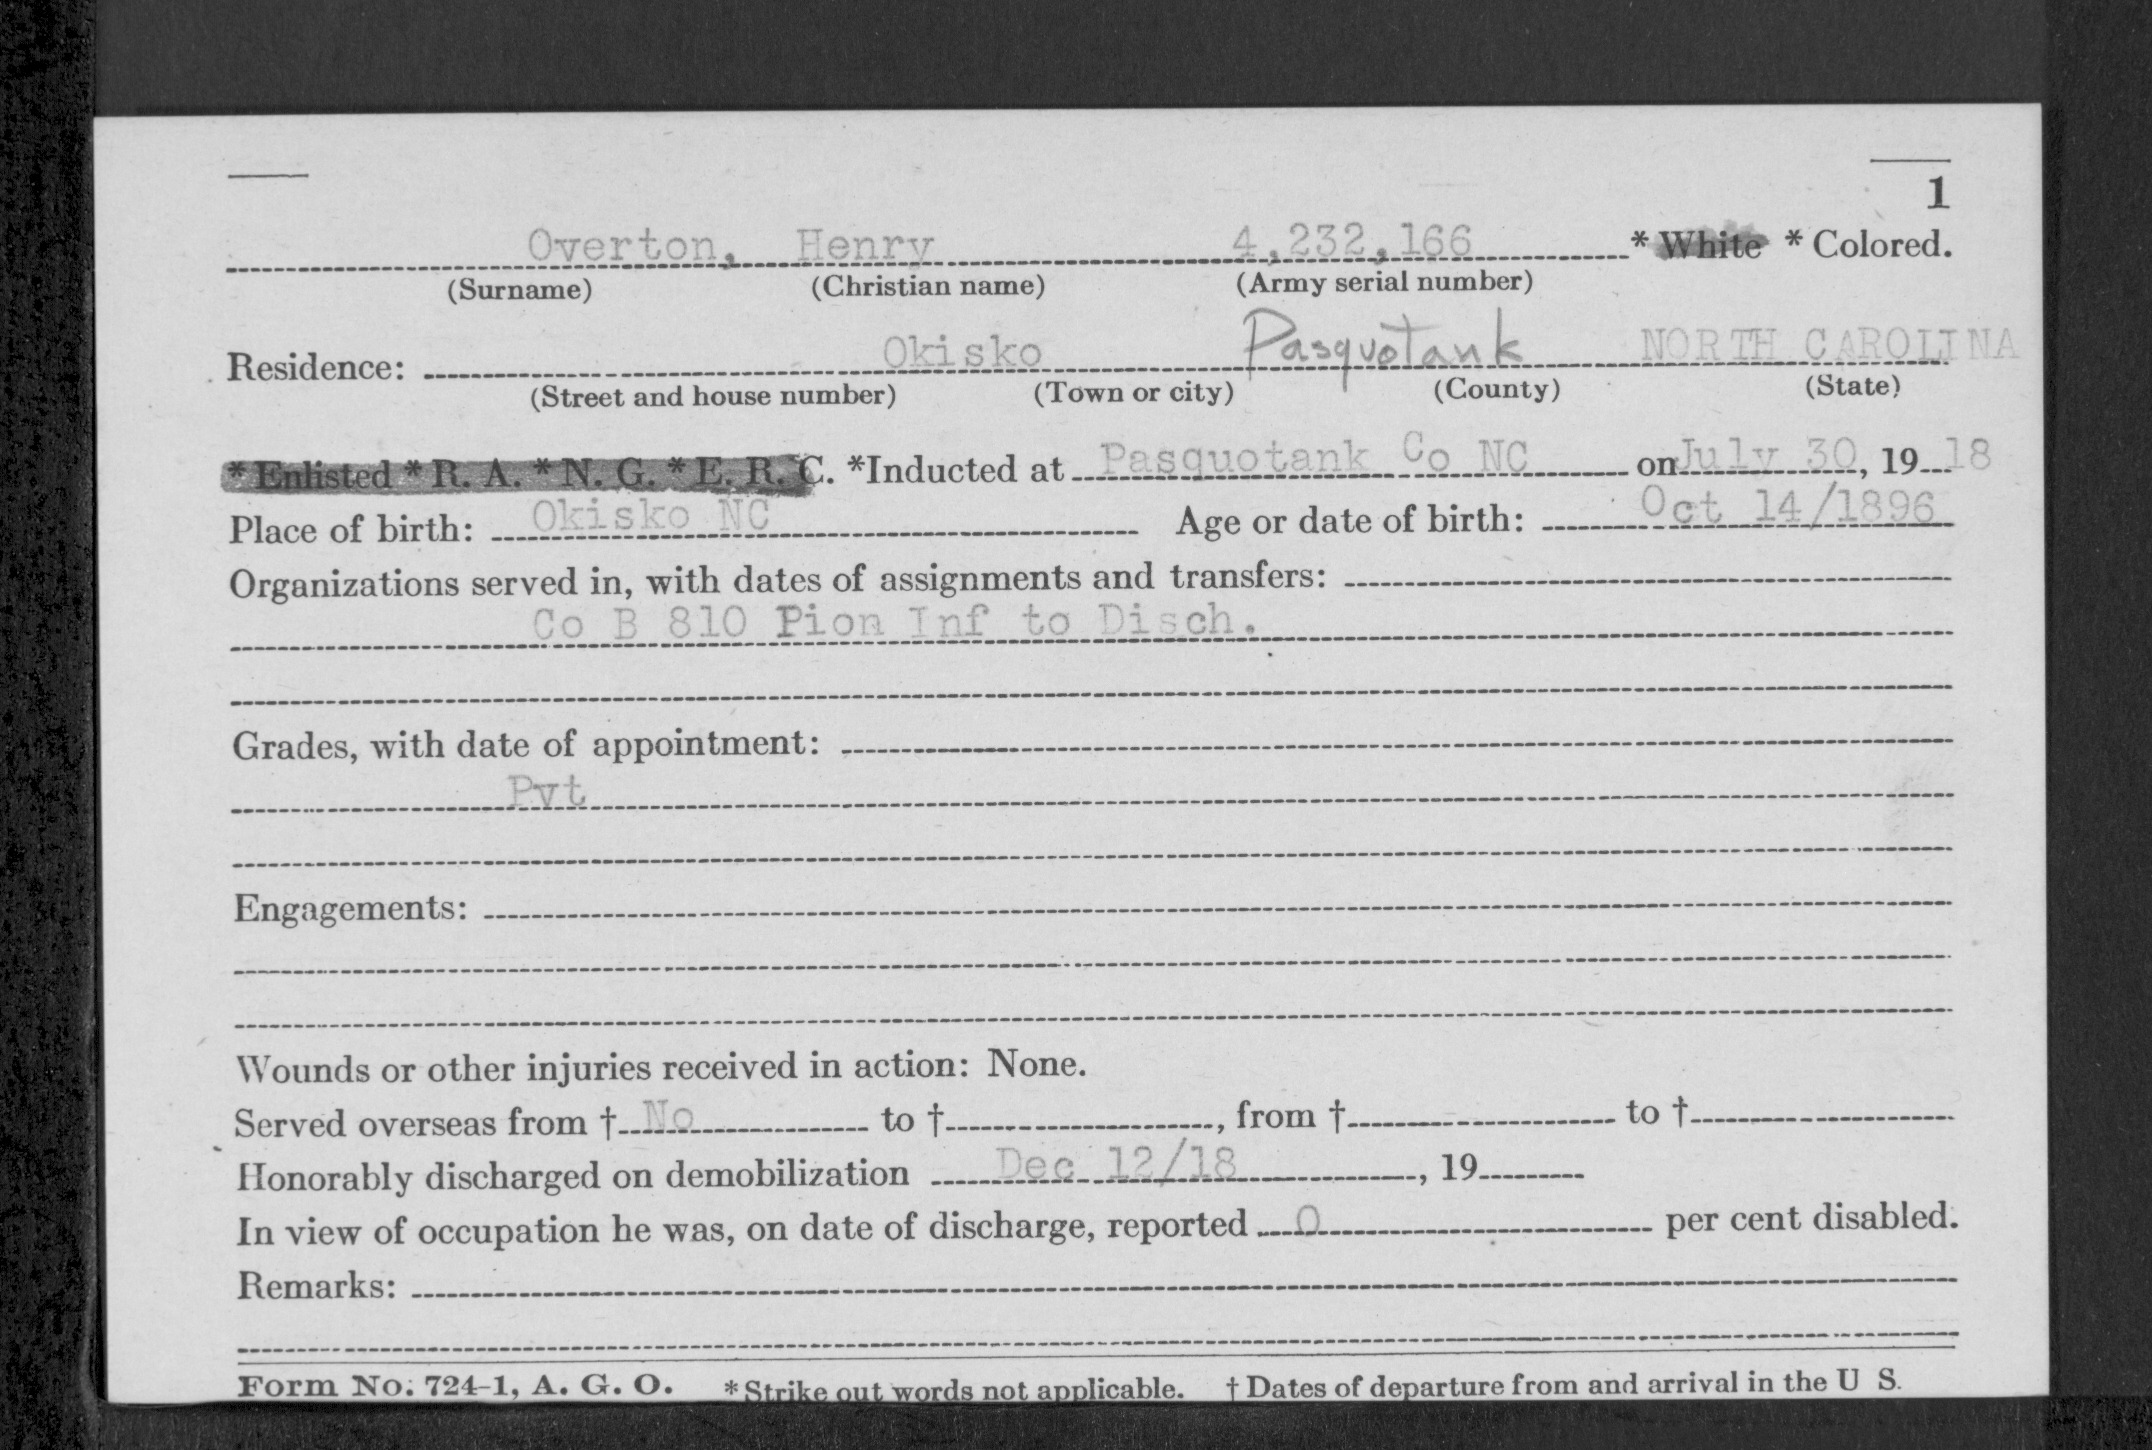 1
Overton, Henry 4,232,166 * White * Colored.
(Surname) (Christian name) (Army serial number)
Residence: Okisko Pasquotank NORTH CAROLINA
(Street and house number) (Town or city) (County) (State)
* Enlisted * R. A. * N. G. * E. R. C. *Inducted at Pasquotank Co NC on July 30, 19 18
Place of birth: Okisko NC Age or date of birth: Oct 14/1896
Organizations served in, with dates of assignments and transfers:
Co B 810 Pion Inf to Disch.
Grades, with date of appointment:
Pvt
Engagements:
Wounds or other injuries received in action: None.
Served overseas from † No to †, from † to †
Honorably discharged on demobilization Dec 12/18, 19
In view of occupation he was, on date of discharge, reported 0 per cent disabled.
Remarks:
Form No. 724-1, A. G. O. * Strike out words not applicable. † Dates of departure from and arrival in the U S.